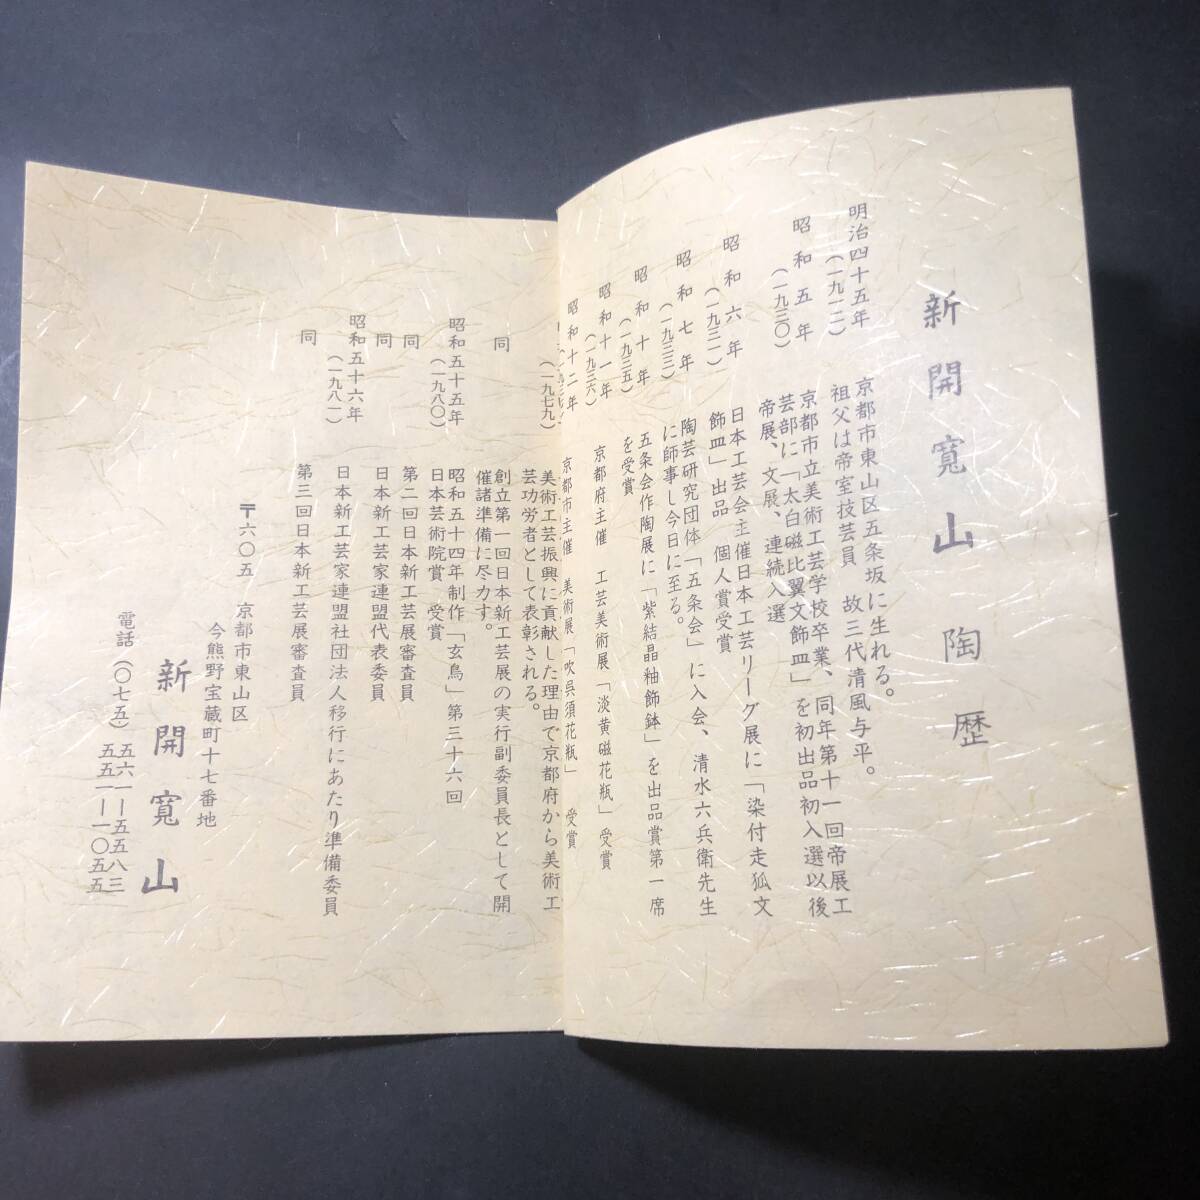 新開寬山 陶歴
明治四十五年
(一九一二)
京都市東山区五条坂に生れる。
祖父は帝室技芸員 故三代清風与平。
昭和五年
(一九三〇)
京都市立美術工芸学校卒業、同年第十一回帝展工
芸部に「太白磁比翼文飾皿」を初出品初入選以後
帝展、文展、連続入選
昭和六年
(一九三一)
日本工芸会主催日本工芸リーグ展に「染付走狐文
飾皿」出品 個人賞受賞
昭和七年
(一九三三)
陶芸研究団体「五条会」に入会、清水六兵衛先生
に師事し今日に至る。
昭和十年
(一九三五)
五条会作陶展に「紫結晶釉飾鉢」を出品賞第一席
を受賞
昭和十一年
(一九三六)
京都府主催 工芸美術展「淡黄磁花瓶」受賞
昭和十二年
京都市主催 美術展「吹呉須花瓶」 受賞
(一九七九)
美術工芸振興に貢献した理由で京都府から美術工
芸功労者として表彰される。
同
創立第一回日本新工芸展の実行副委員長として開
催諸準備に尽力す。
昭和五十五年
(一九八〇)
昭和五十四年制作「玄鳥」第三十六回
日本芸術院賞 受賞
同
第二回日本新工芸展審査員
同
日本新工芸家連盟代表委員
昭和五十六年
(一九八一)
日本新工芸家連盟社団法人移行にあたり準備委員
同
第三回日本新工芸展審査員
〒六〇五 京都市東山区
今熊野宝蔵町十七番地
新開寬山
電話(〇七五) 五六一ー五五八三
五五一ー一〇五五